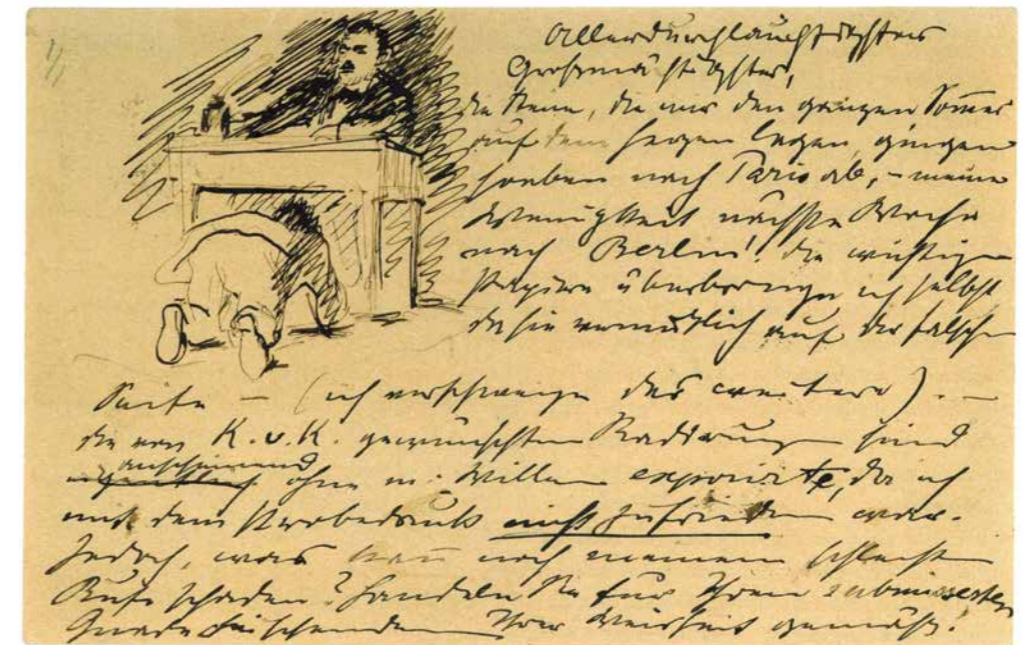 Allerdurchlauchtigster
Großmächtigster,
die Steine, die mir den ganzen Sommer
auf dem Herzen lagen, gingen
soeben nach Paris ab, – meine
Wenigkeit nächste Woche
nach Berlin! Die wichtigen
Papiere überbringe ich selbst
da sie vermutlich auf der falschen
Seite – (ich verschweige das weitere). –
die von K. v. K. gewünschten Radirungen sind
anscheinend ohne m. Willen exponirt, da ich
mit dem Probedruck nicht zufrieden war.
Jedoch, was kann noch meinem schlechten
Rufe schaden? Handeln Sie für Ihren submissesten
Gnade Ihrer Weisheit gemäß!